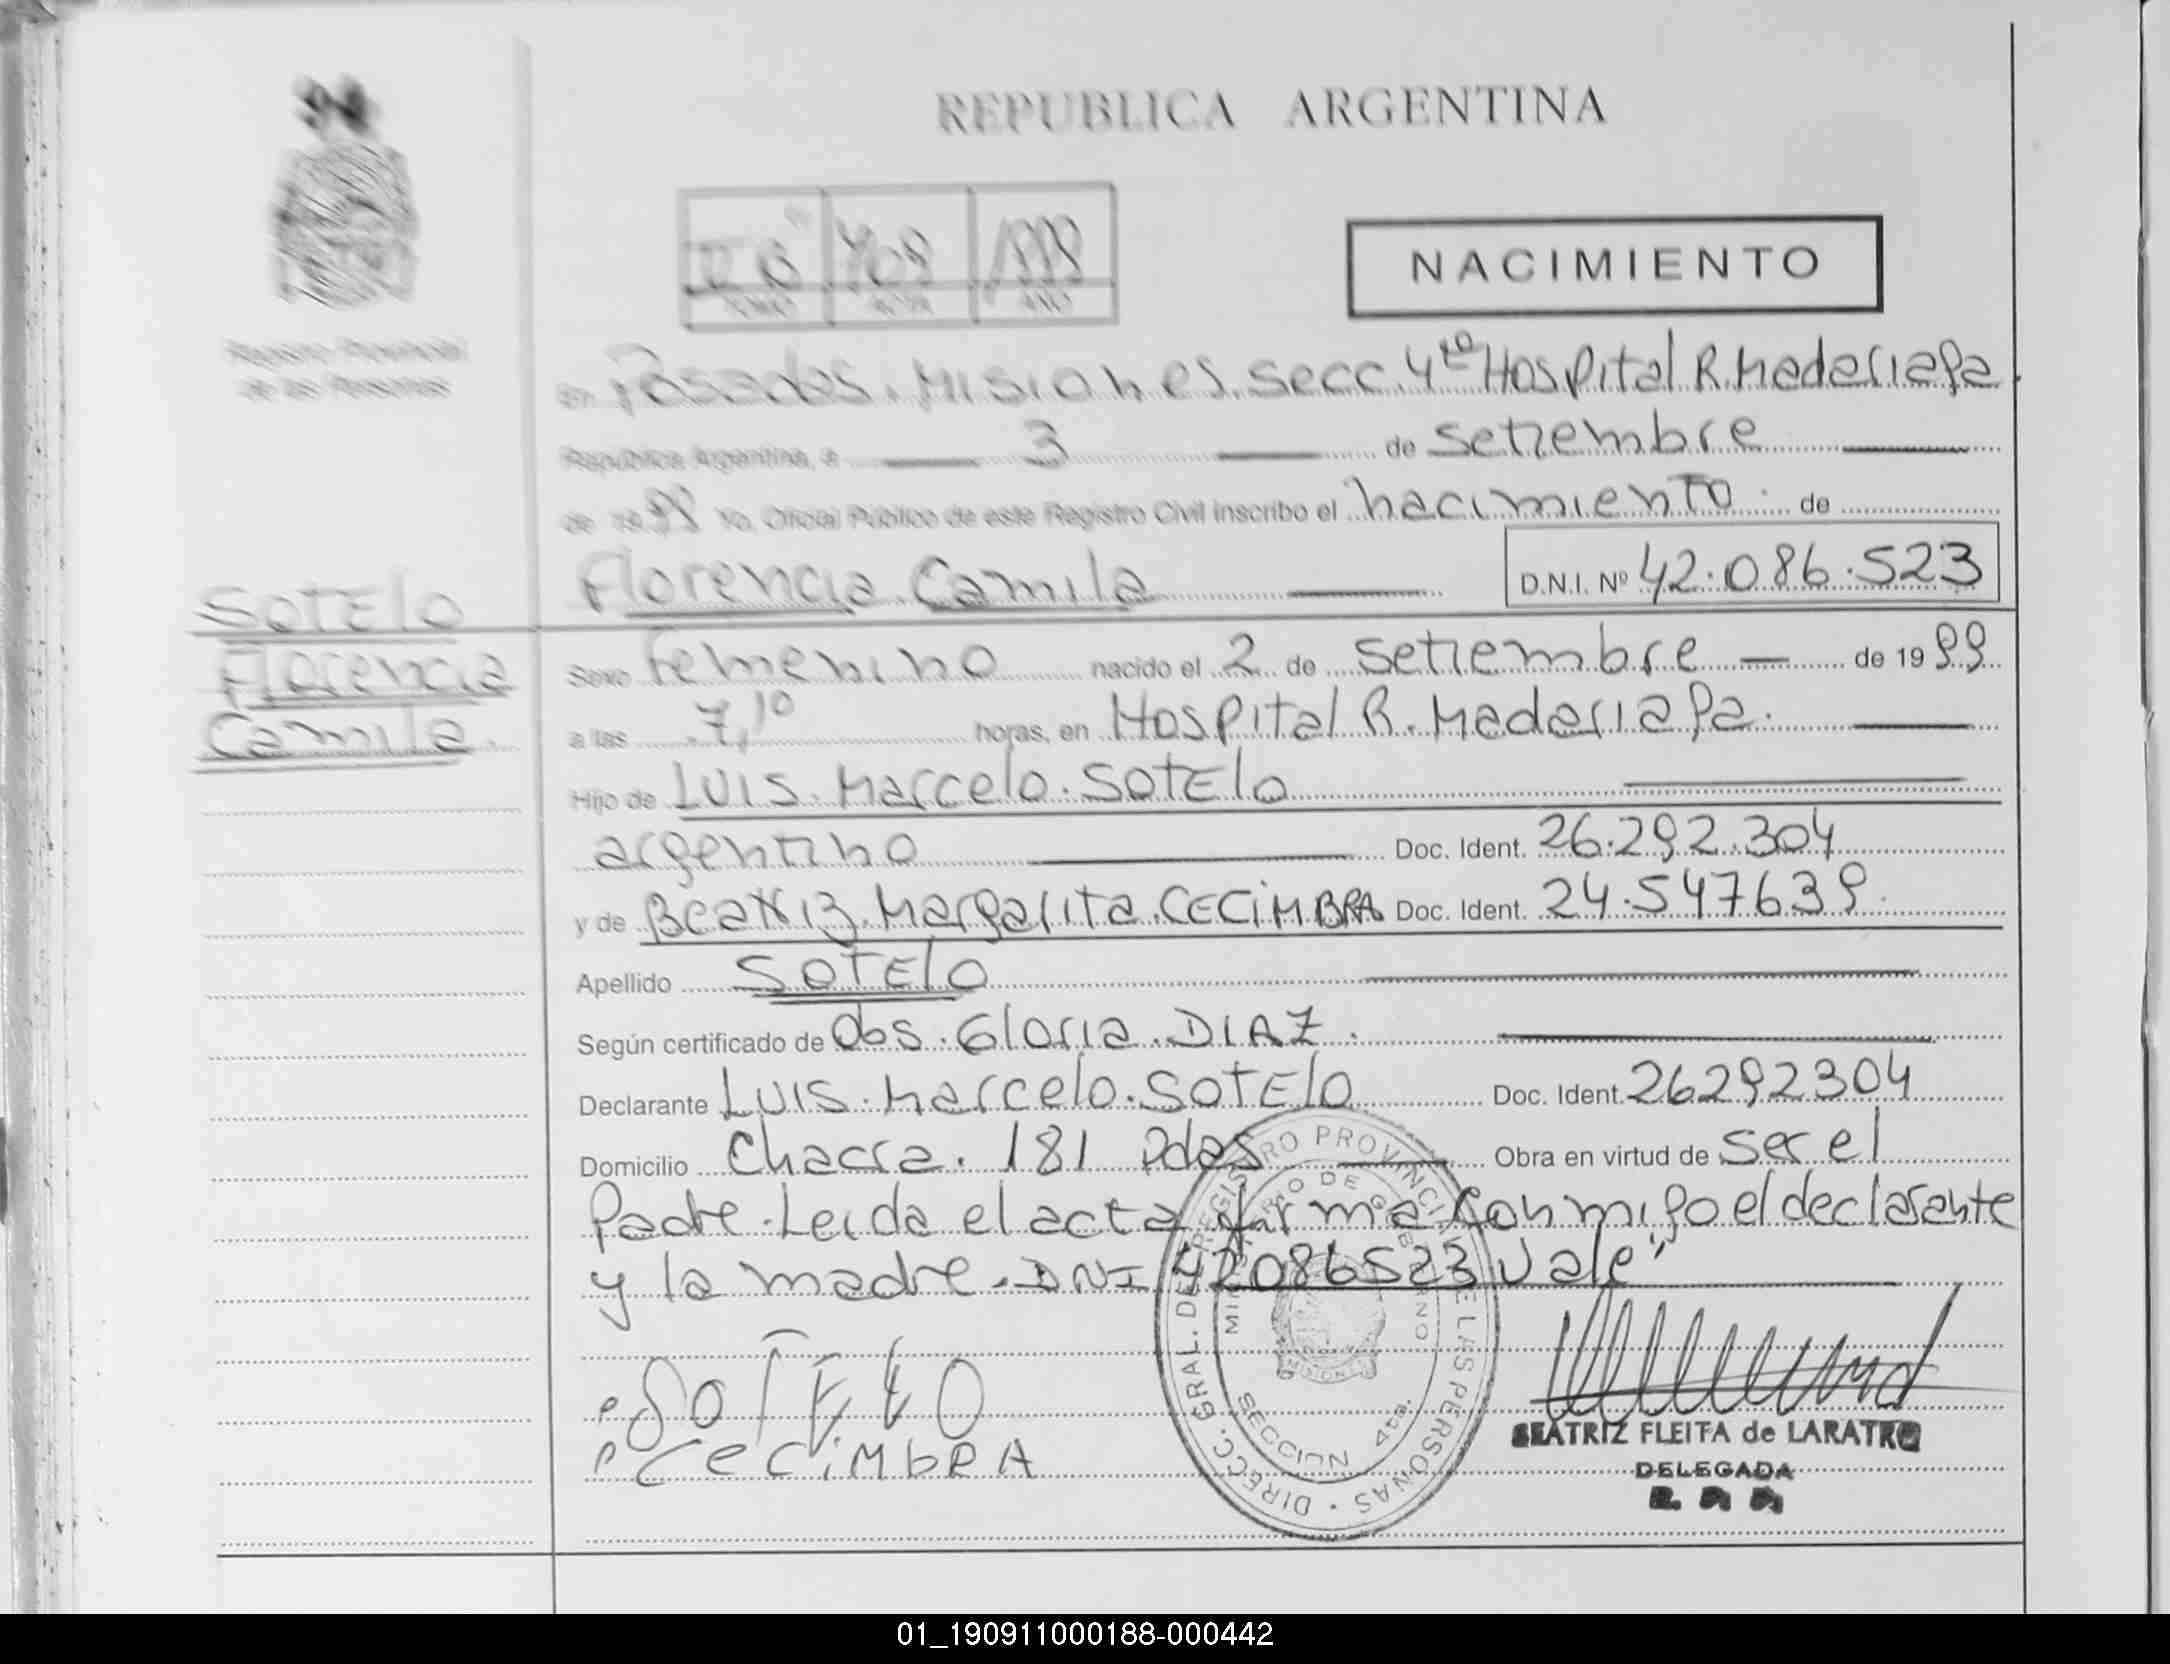 REPUBLICA ARGENTINA
1999
TOMO ACTA AÑO
NACIMIENTO
Registro Provincial
de las Personas
En Posadas. Misiones. Secc. 4ta Hospital R. Madariaga.
República Argentina, a 3 de Setiembre
de 1999 Yo, Oficial Público de este Registro Civil inscribo el nacimiento. de
Florencia Camila D.N.I. Nº 42.086.523
SOTElO
Florencia
Camila.
Sexo Femenino nacido el 2 de Setiembre de 1999
a las 7,10 horas, en Hospital R. Madariaga.
Hijo de LUIS. Marcelo. SOTElO
argentino Doc. Ident. 26.292.304
y de Beatriz. Margarita. CECiMBRA Doc. Ident. 24.547639.
Apellido SOTElO
Según certificado de Obs. Gloria. DIAZ.
Declarante LUIS. Marcelo. SOTElO Doc. Ident. 26292304
Domicilio Chacra. 181 Pdas Obra en virtud de ser el
Padre. Leida el acta firma conmigo el declarante
y la madre. DNI 42086523 Vale"
SOTELO
CeCiMbRA
DIRECC. GRAL. DEL REGISTRO PROVINCIAL DE LAS PERSONAS
MINISTERIO DE GOBIERNO
MISIONES
SECCION 4ta.
BEATRIZ FLEITA de LARATRO
DELEGADA
01_190911000188-000442